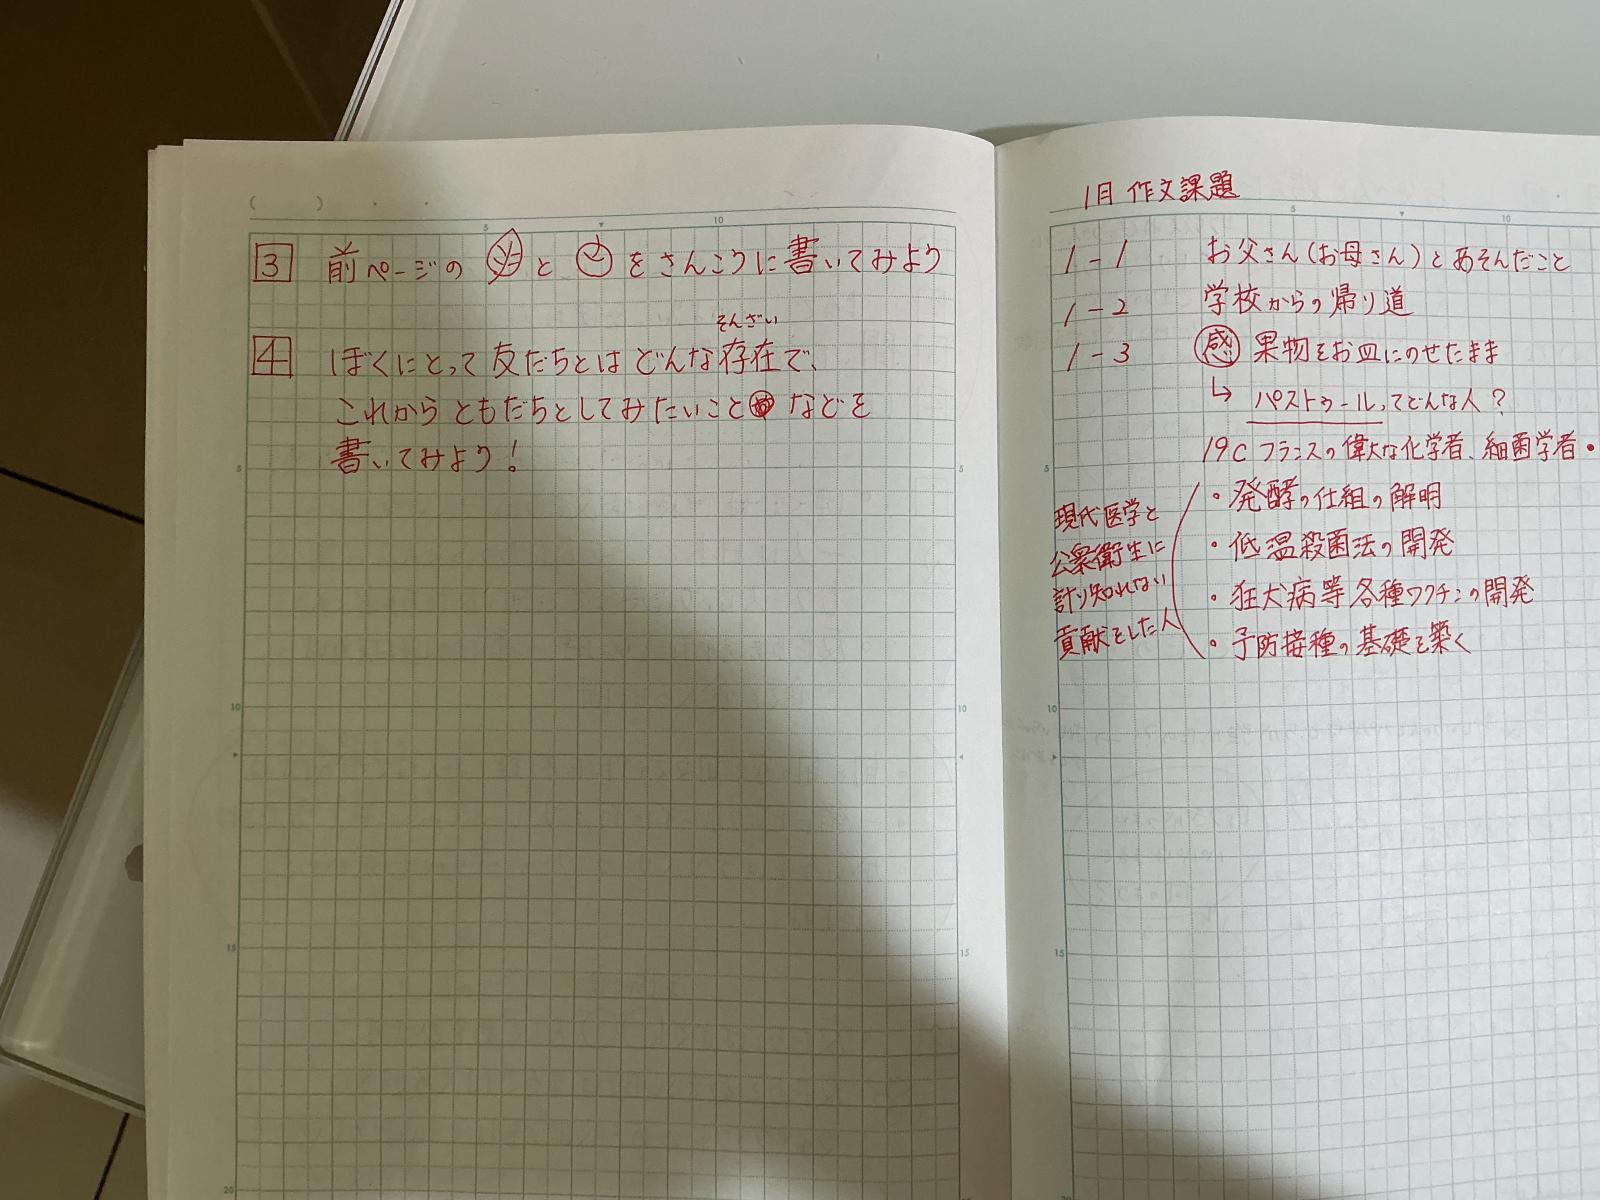 3 前ページの と をさんこうに書いてみよう
そんざい
4 ぼくにとって友だちとはどんな存在で、
これからともだちとしてみたいこと などを
書いてみよう!
1月 作文課題
1-1 お父さん(お母さん)とあそんだこと
1-2 学校からの帰り道
1-3 感 果物をお皿にのせたまま
↳ パストゥールってどんな人?
19c フランスの偉大な化学者、細菌学者・
・発酵の仕組の解明
・低温殺菌法の開発
・狂犬病等各種ワクチンの開発
・予防接種の基礎を築く
現代医学と
公衆衛生に
計り知れない
貢献をした人
5 10
5
10
15
20